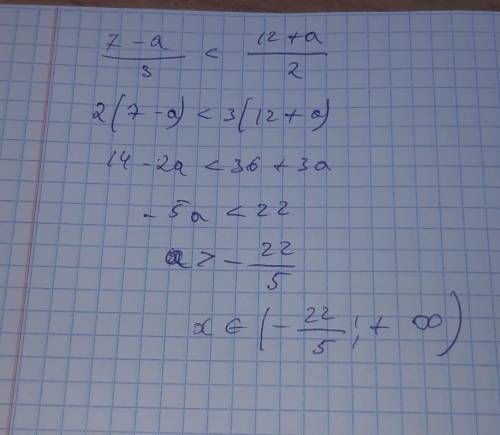 (7 - a)/3 < (12 + a)/2
2(7 - a) < 3(12 + a)
14 - 2a < 36 + 3a
- 5a < 22
a > - 22/5
x ∈ (- 22/5; + ∞)